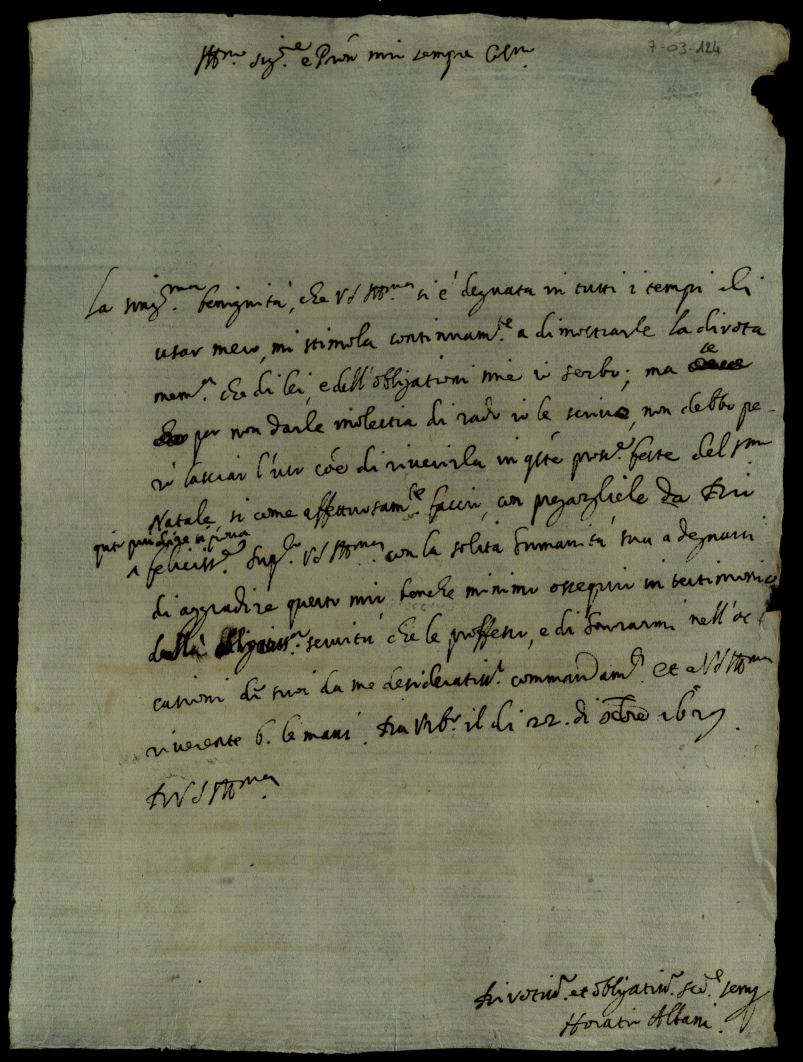 7-03-124
Ill.mo Sig.re e Pron mio sempre Col.mo
La sing.ma benignità, che VS Ill.ma si è degnata in tutti i tempi di
usar meco, mi stimola continuam.te a dimostrarle la divota
mem.a che di lei, e dell'obligationi mie io serbo; ma se
per non darle molestia di rado io le scrivo, non debbo pe-
rò lasciar l'uso cõe di riverirla in q̃ste pross.e feste del S.mo
Natale, si come affettuosam.te faccio, con pregargliele da Dio
felicis.e Sup.co VS Ill.ma con la solita humanità sua a degnarsi
di aggradire questo mio benche minimo ossequio in testimonio
della servitù che le professo, e di honorarmi nell'oc-
casioni de suoi da me desideratiss.i commandam.ti Et a VS Ill.ma
riverente b. le mani. Da Urb.o il di 22. di Xbre
Di VS Ill.ma
Divotis.o et obligatis.o ser.e
Horatio Albani.